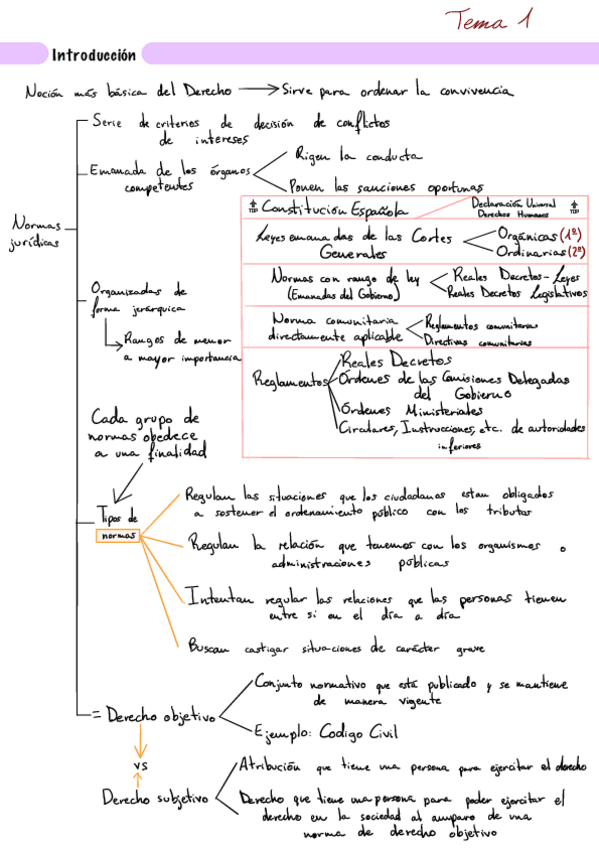 Tema 1
Introducción
Noción más básica del Derecho → Sirve para ordenar la convivencia
Serie de criterios de decisión de conflictos
de intereses
Emanada de los órganos
competentes
Rigen la conducta
Ponen las sanciones oportunas
Normas
jurídicas
TOP Constitución Española
Declaración Universal
Derechos Humanos
TOP
Leyes emanadas de las Cortes
Generales
Orgánicas (1º)
Ordinarias (2º)
Normas con rango de ley
(Emanadas del Gobierno)
Reales Decretos-Leyes
Reales Decretos Legislativos
Norma comunitaria
directamente aplicable
Reglamentos comunitarios
Directivas comunitarias
Reglamentos
Reales Decretos
Órdenes de las Comisiones Delegadas
del Gobierno
Órdenes Ministeriales
Circulares, Instrucciones, etc. de autoridades
inferiores
Organizadas de
forma jerárquica
Rangos de menor
a mayor importancia
Cada grupo de
normas obedece
a una finalidad
Tipos de
normas
Regulan las situaciones que los ciudadanos estan obligados
a sostener el ordenamiento público con los tributos
Regulan la relación que tenemos con los organismos o
administraciones públicas
Intentan regular las relaciones que las personas tienen
entre si en el día a día
Buscan castigar situaciones de carácter grave
= Derecho objetivo
Conjunto normativo que está publicado y se mantiene
de manera vigente
Ejemplo: Codigo Civil
vs
Derecho subjetivo
Atribución que tiene una persona para ejercitar el derecho
Derecho que tiene una persona para poder ejercitar el
derecho en la sociedad al amparo de una
norma de derecho objetivo